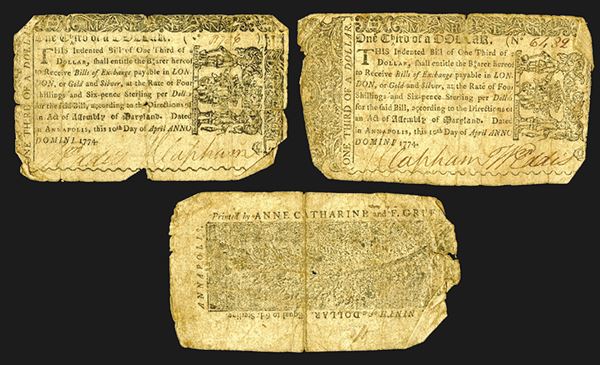 One Third of a DOLLAR.
THIS Indented Bill of One Third of
DOLLAR, shall entitle the Bearer hereof
to Receive Bills of Exchange payable in LON-
DON, or Gold and Silver, at the Rate of Four
Shillings and Six-pence Sterling per Dollar
for the said Bill, according to the Directions of
an Act of Assembly of Maryland. Dated
in ANNAPOLIS, this 10th Day of April ANNO
DOMINI 1774.
Clapham
ONE THIRD OF A DOLLAR
One Third of a DOLLAR. (No
THIS Indented Bill of One Third of
DOLLAR, shall entitle the Bearer hereof
to Receive Bills of Exchange payable in LON-
DON, or Gold and Silver, at the Rate of Four
Shillings and Six-pence Sterling per Dollar
for the said Bill, according to the Directions of
an Act of Assembly of Maryland. Dated
in ANNAPOLIS, this 10th Day of April ANNO
DOMINI 1774.
Clapham
ONE THIRD OF A DOLLAR
Printed by ANNE CATHARINE and F. GREE
ANNAPOLIS
DOLLAR, Equal to 6d. Sterling